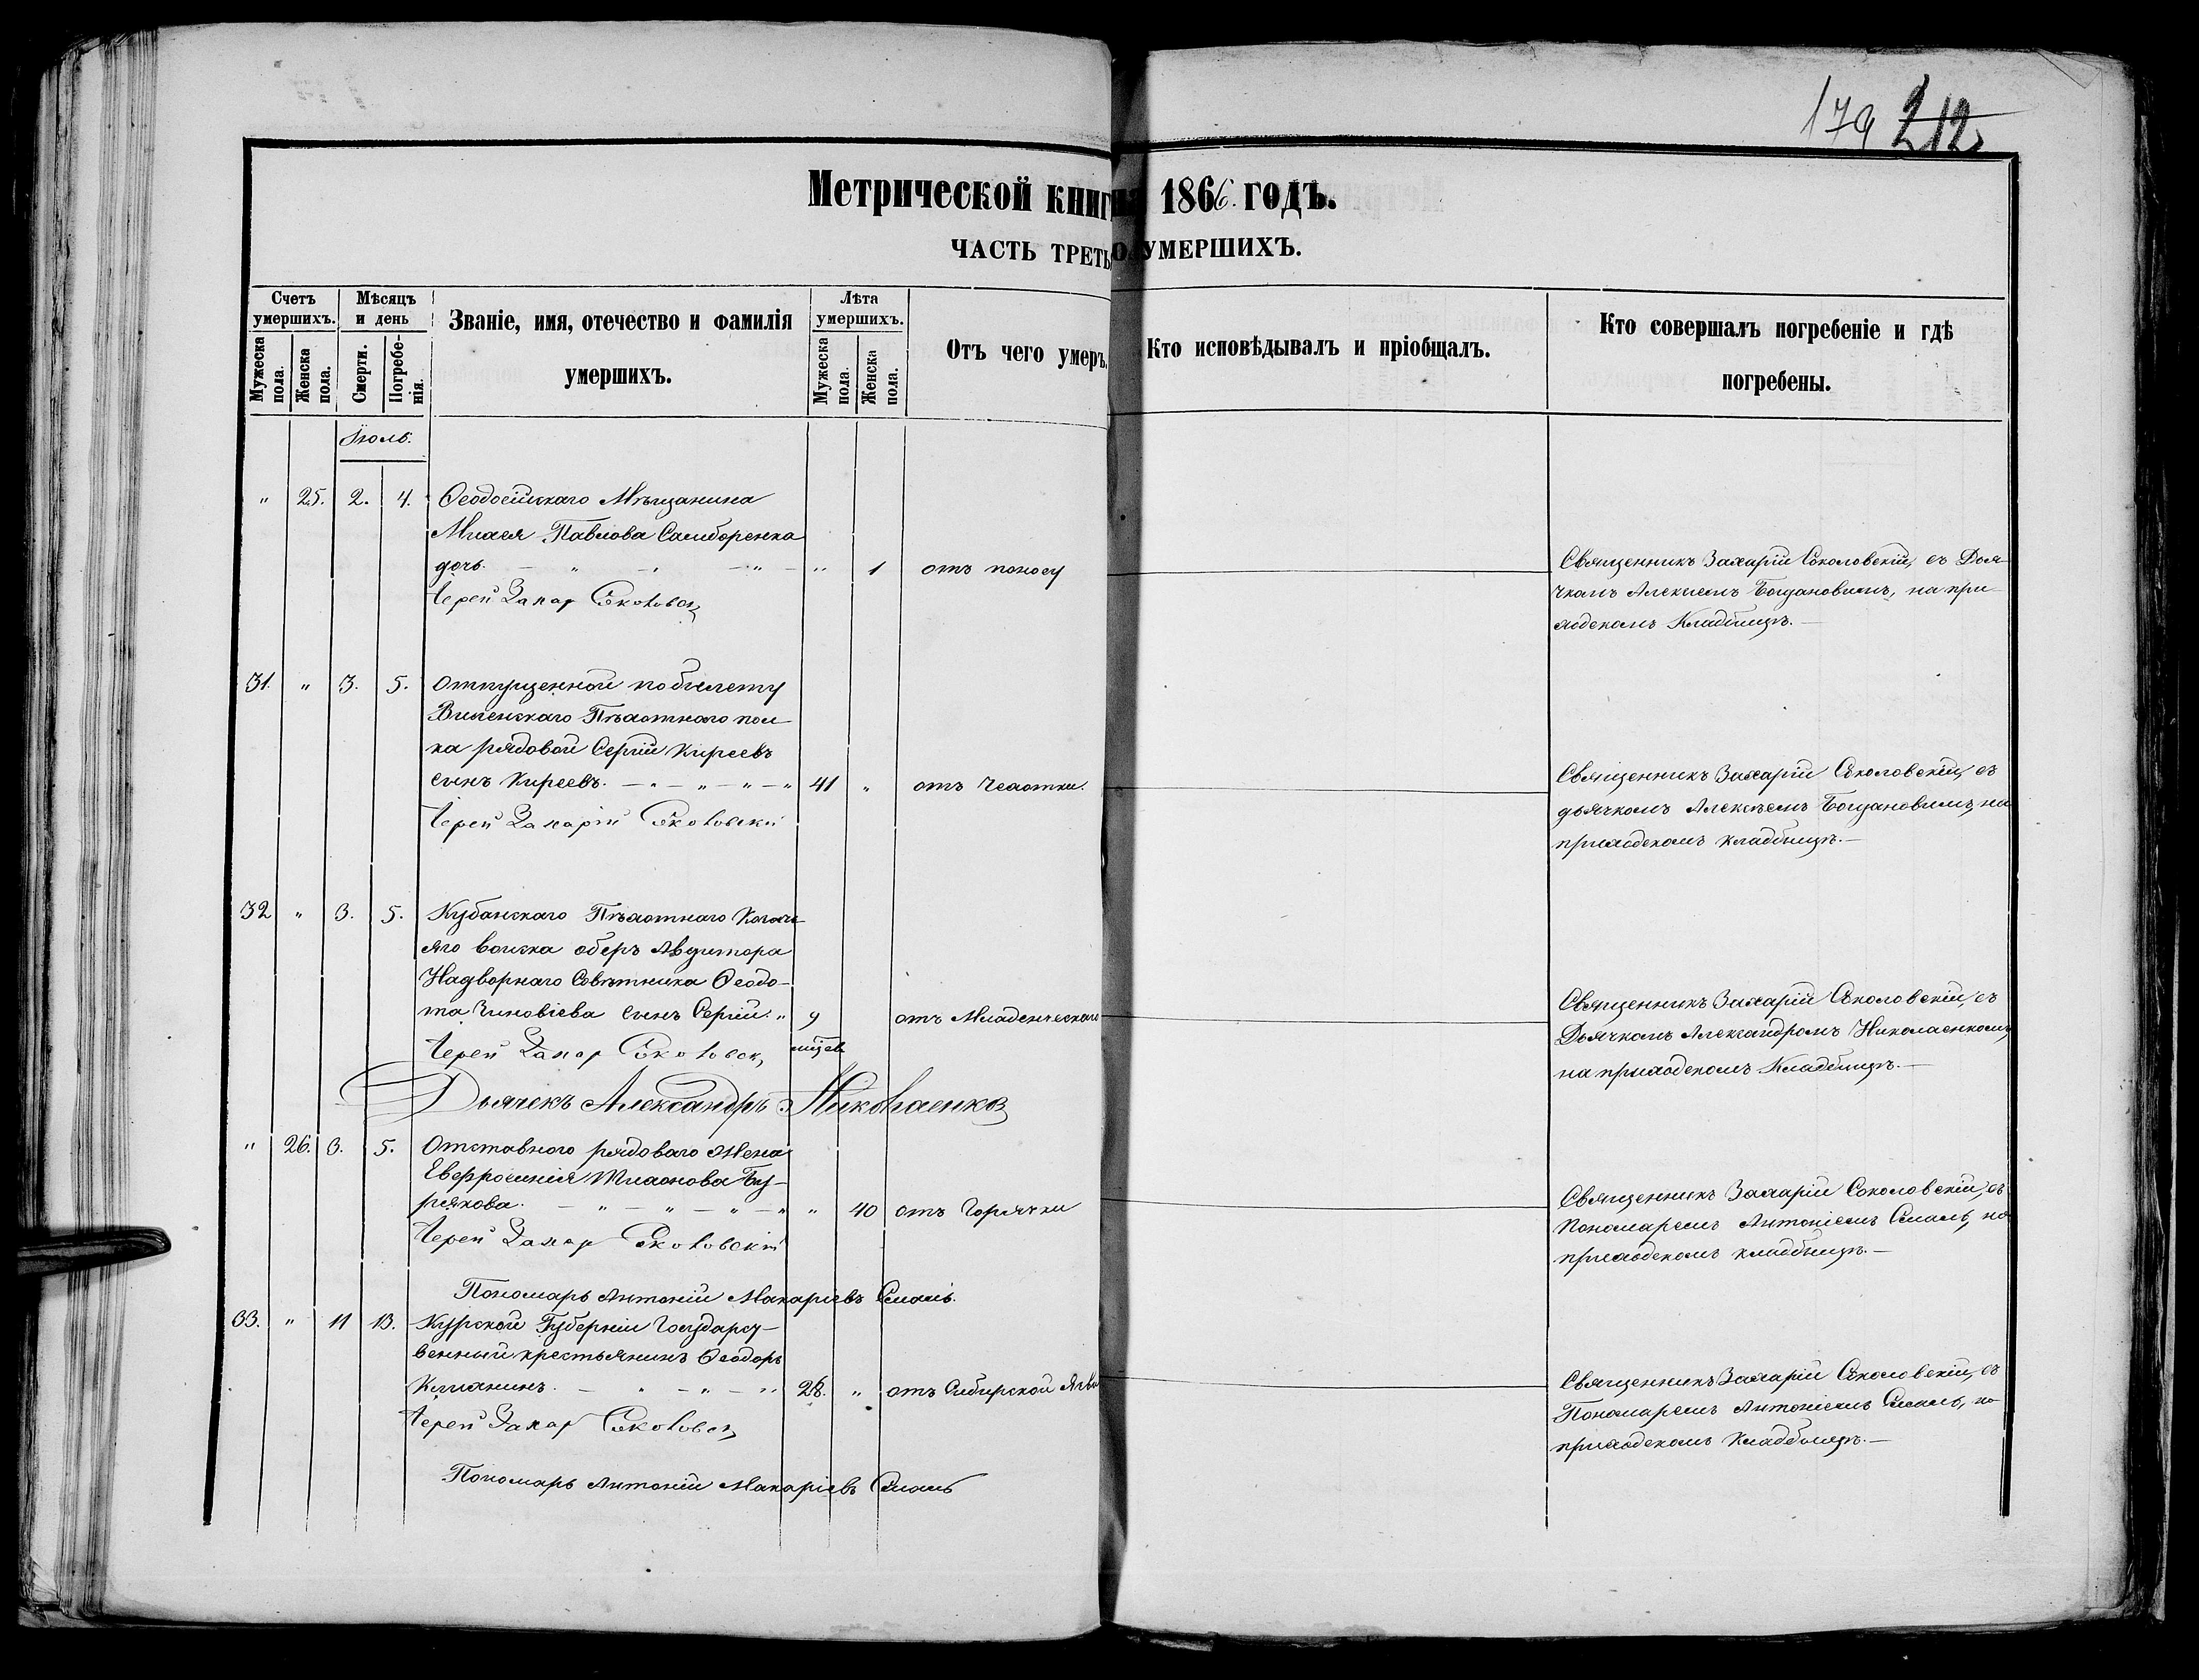 179 212
Метрической книги 1866. годъ.
ЧАСТЬ ТРЕТЬ О УМЕРШИХЪ.
Счетъ умершихъ.
Мѣсяцъ и день
Званіе, имя, отечество и фамилія умершихъ.
Лѣта умершихъ.
Отъ чего умеръ.
Кто исповѣдывалъ и пріобщалъ.
Кто совершалъ погребеніе и гдѣ погребены.
Мужеска пола.
Женска пола.
Смерти.
Погребенія.
Мужеска пола.
Женска пола.
Іюль.
" 25. 2. 4. Ѳеодосійскаго Мѣщанина
Павлова Самборенка
дочь. — " — " — " — " 1 отъ поносу
Іерей Захар Соколовск
Священникъ Захарій Соколовскій, съ Дья-
чкомъ Алексѣемъ Богдановымъ, на при-
ходскомъ Кладбищѣ. —
31. " 3. 5. Отпущенной по билету
Виленскаго Пѣхотнаго пол
ка рядовой Сергій Киреевъ
сынъ Киреевъ. — " — " — " — " 41 " отъ Чахотки.
Іерей Захарій Соколовскій
Священникъ Захарій Соколовскій, съ
дьячкомъ Алексѣемъ Богдановымъ, на
приходскомъ кладбищѣ. —
32 " 3. 5. Кубанскаго Пѣхотнаго Казачь
яго войска оберъ Авдитора
Надворнаго Совѣтника Ѳеодо-
та Зиновіева сынъ Сергій. " 9 отъ Младенческой
Іерей Захар Соколовск,
Священникъ Захарій Соколовскій, съ
Дьячкомъ Александромъ Николаенкомъ,
на приходскомъ Кладбищѣ. —
Дьячекъ Александръ Николаенко
" 26. 3. 5. Отставного рядоваго Жена
Евфросинія Бу-
рякова. — " — " — " — " " 40 отъ Горячки
Іерей Захар Соколовскій
Священникъ Захарій Соколовскій, съ
Пономаремъ Антоніемъ Смаль, на
приходскомъ кладбищѣ. —
Пономарь Антоній Макаріевъ Смаль.
33. " 11 13. Курской Губерніи Государст-
венный крестьянинъ Ѳеодоръ
— " — " — " 28. " отъ Сибирской Язвы
Іерей Захар Соколовск
Священникъ Захарій Соколовскій, съ
Пономаремъ Антоніемъ Смаль, на
приходскомъ Кладбищѣ. —
Пономарь Антоній Макаріевъ Смаль